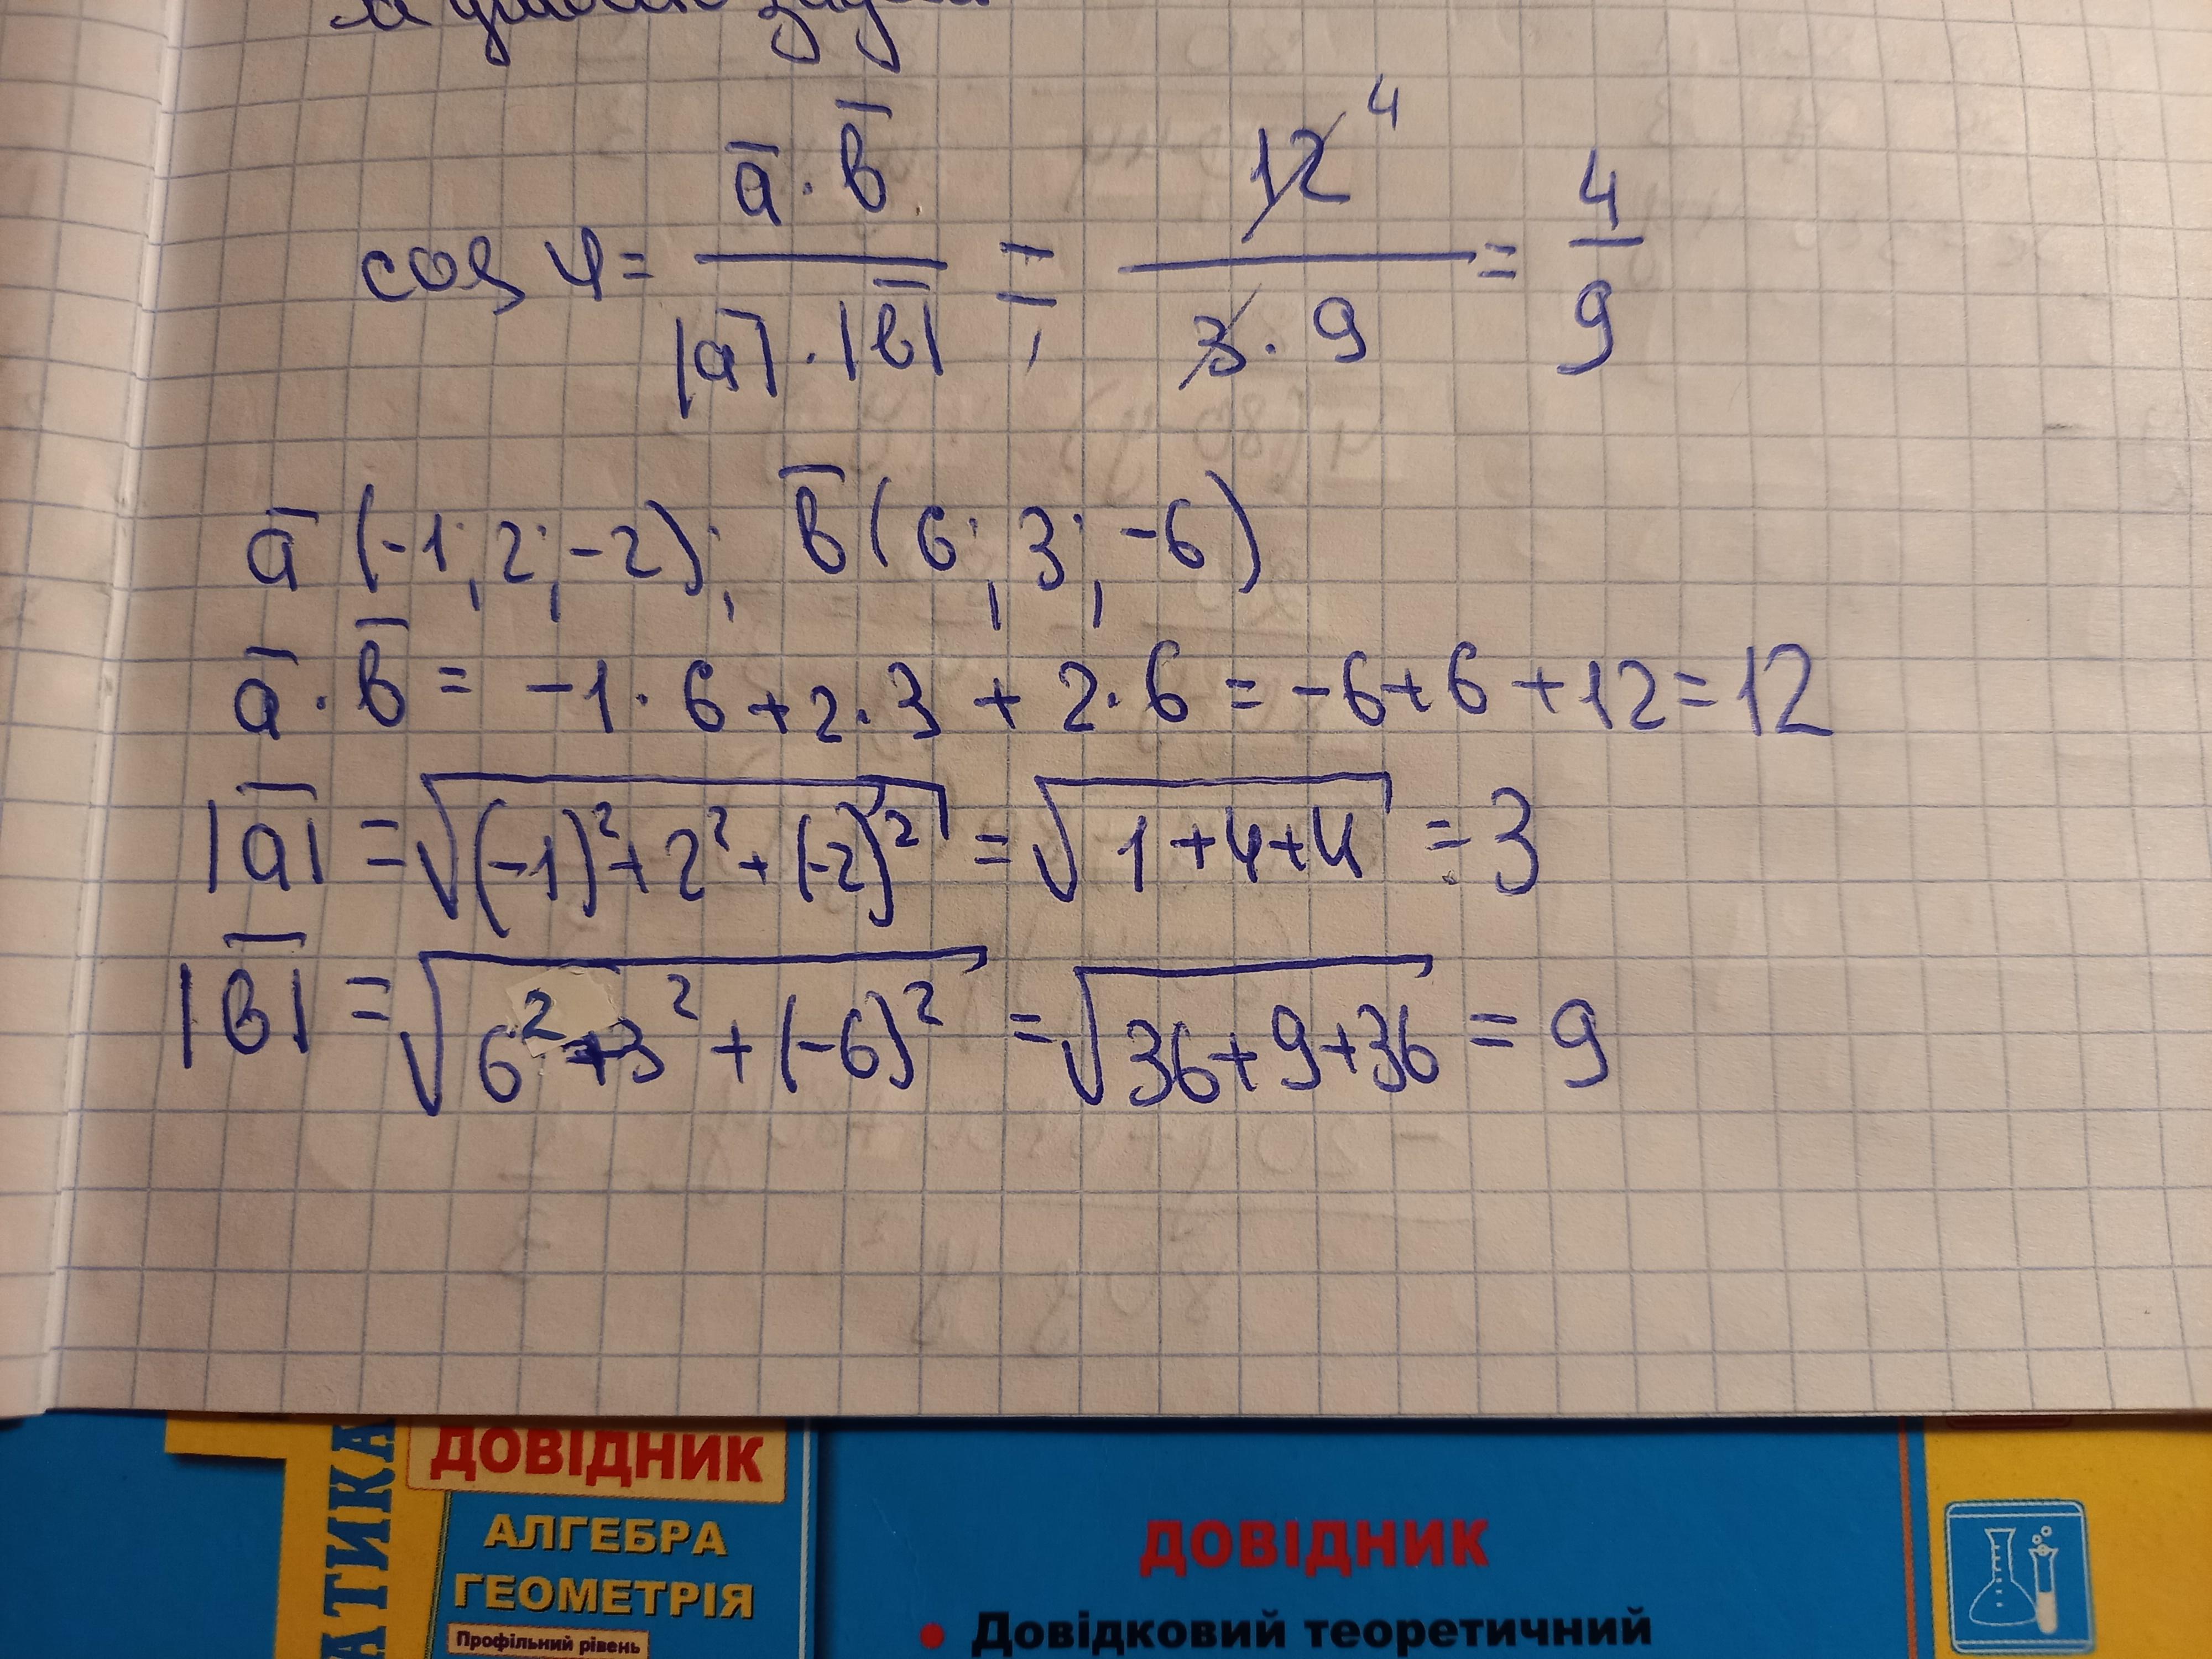 cos φ = ā · b̄ / |ā| · |b̄| = 12 4 / 3 · 9 = 4 / 9
ā (-1; 2; -2); b̄ (6; 3; -6)
ā · b̄ = -1 · 6 + 2 · 3 + 2 · 6 = -6 + 6 + 12 = 12
|ā| = √((-1)² + 2² + (-2)²) = √(1 + 4 + 4) = 3
|b̄| = √(6² + 3² + (-6)²) = √(36 + 9 + 36) = 9
АТИКА
ДОВІДНИК
АЛГЕБРА
ГЕОМЕТРІЯ
Профільний рівень
ДОВІДНИК
• Довідковий теоретичний